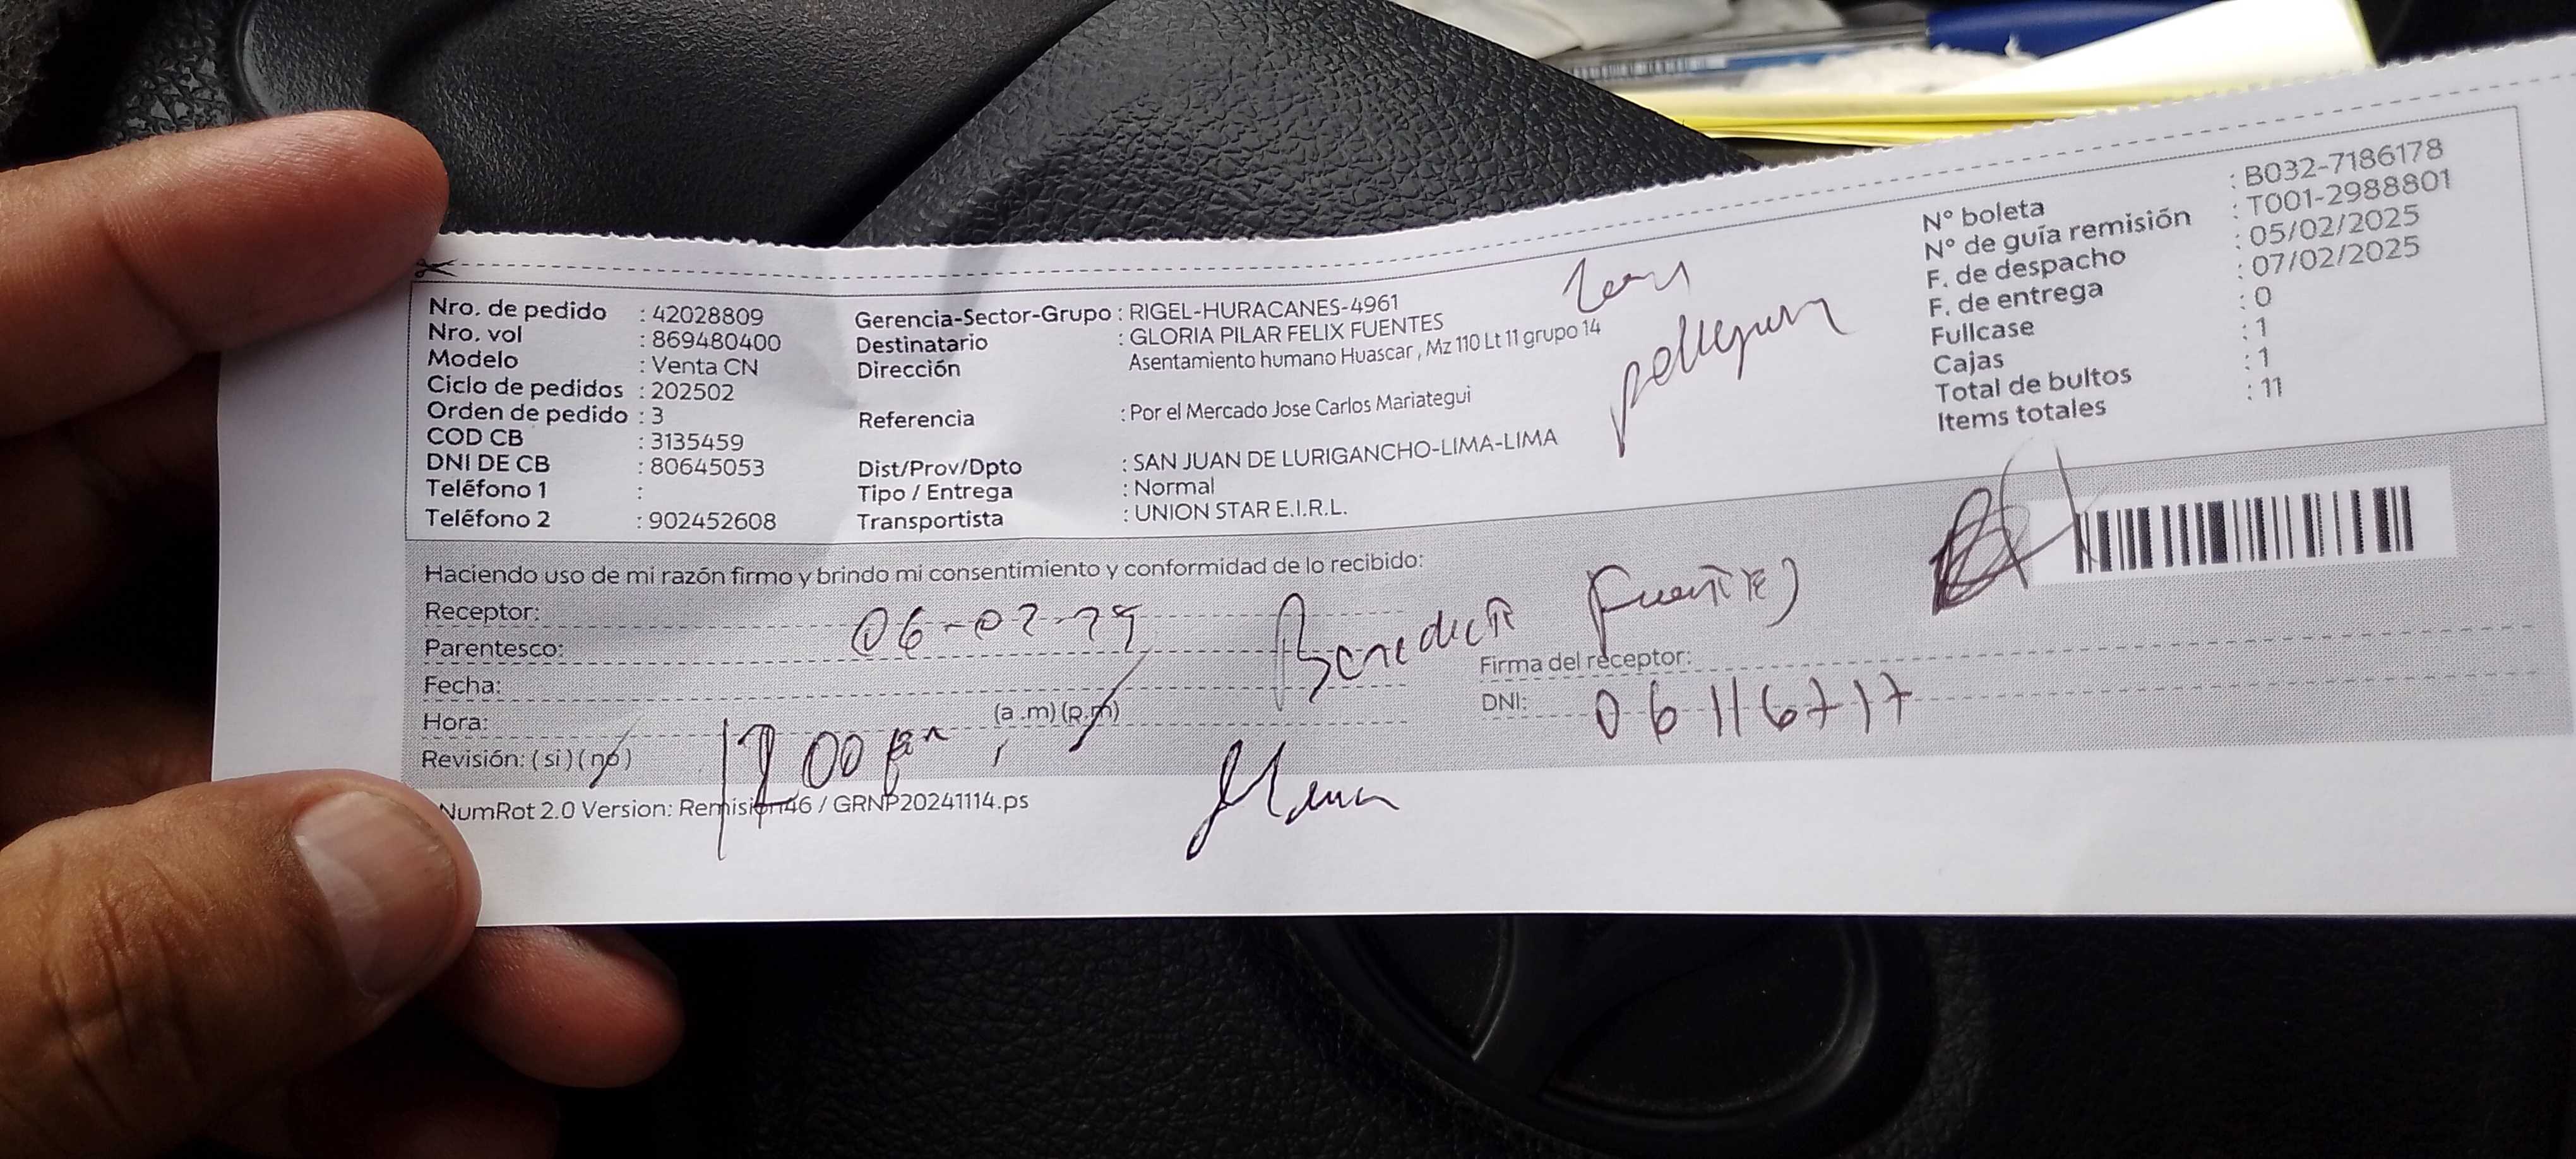 Nro. de pedido : 42028809
Nro. vol : 869480400
Modelo : Venta CN
Ciclo de pedidos : 202502
Orden de pedido : 3
COD CB : 3135459
DNI DE CB : 80645053
Teléfono 1 :
Teléfono 2 : 902452608
Gerencia-Sector-Grupo : RIGEL-HURACANES-4961
Destinatario : GLORIA PILAR FELIX FUENTES
Dirección Asentamiento humano Huascar , Mz 110 Lt 11 grupo 14
Referencia : Por el Mercado Jose Carlos Mariategui
Dist/Prov/Dpto : SAN JUAN DE LURIGANCHO-LIMA-LIMA
Tipo / Entrega : Normal
Transportista : UNION STAR E.I.R.L.
N° boleta : B032-7186178
N° de guía remisión : T001-2988801
F. de despacho : 05/02/2025
F. de entrega : 07/02/2025
Fullcase : 0
Cajas : 1
Total de bultos : 1
Items totales : 11
Haciendo uso de mi razón firmo y brindo mi consentimiento y conformidad de lo recibido:
Receptor:
Parentesco:
Fecha:
Hora: (a .m) (p.m)
Revisión: ( si ) ( no )
Fuentes
Firma del receptor:
DNI: 06116717
NumRot 2.0 Version: Remision46 / GRNP20241114.ps